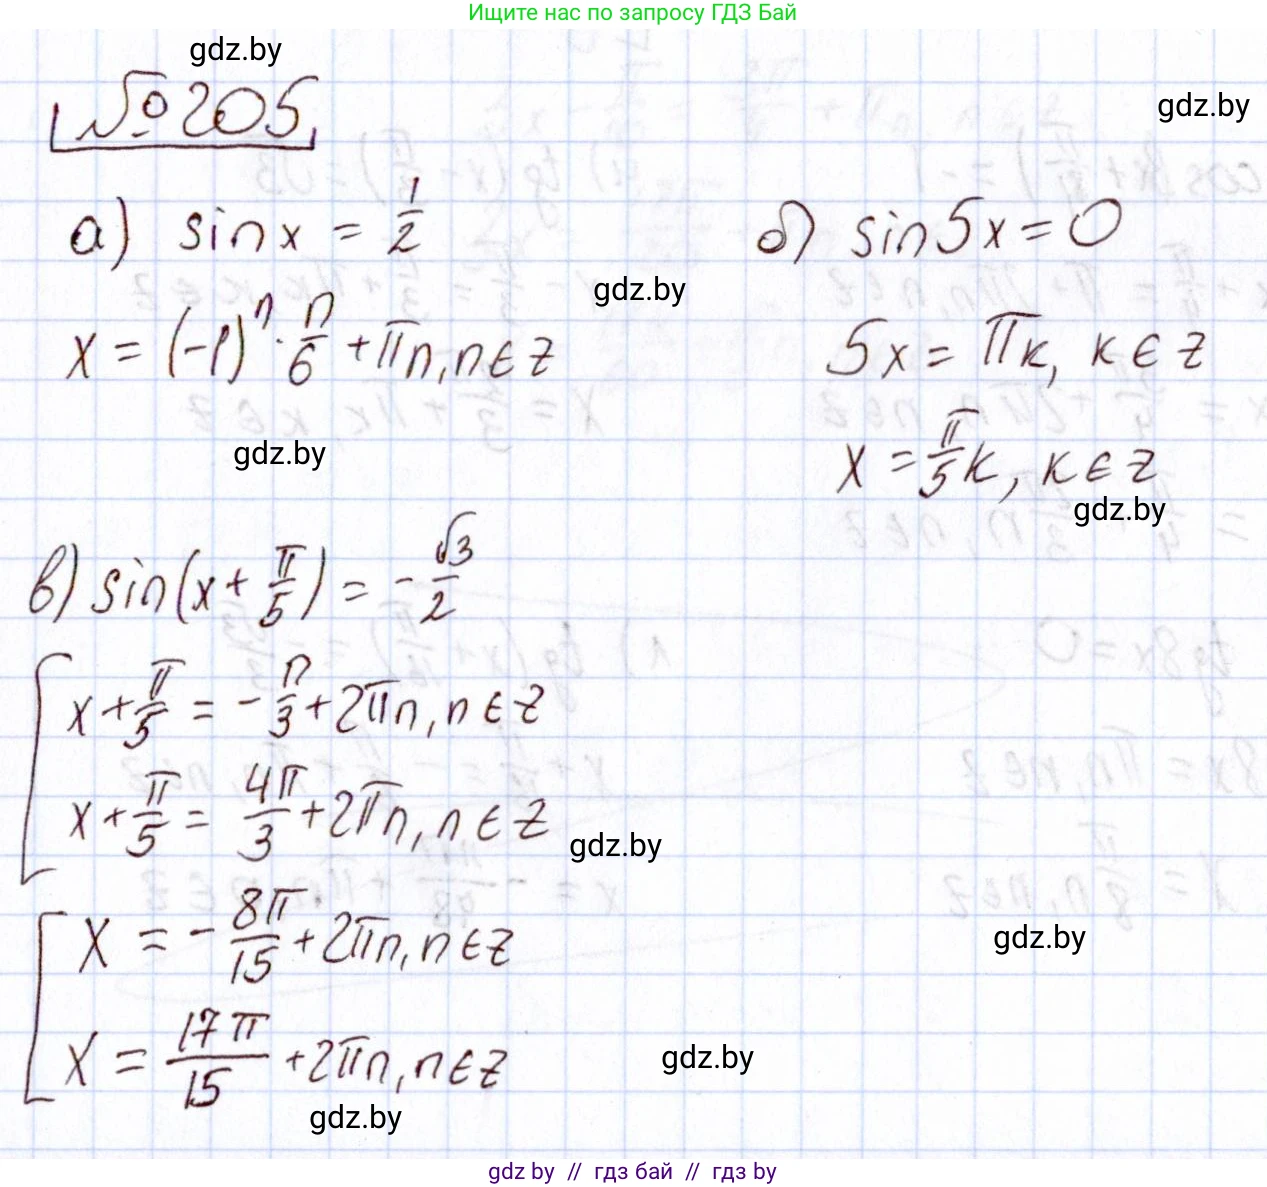 Ищите нас по запросу ГДЗ Бай
gdz.by
№205
gdz.by
а) sin x = 1/2
б) sin 5x = 0
gdz.by
x = (-1)^n · π/6 + πn, n ∈ z
5x = πк, к ∈ z
gdz.by
x = π/5 к, к ∈ z
gdz.by
в) sin(x + π/5) = - √3/2
x + π/5 = - π/3 + 2πn, n ∈ z
x + π/5 = 4π/3 + 2πn, n ∈ z
gdz.by
x = - 8π/15 + 2πn, n ∈ z
gdz.by
x = 17π/15 + 2πn, n ∈ z
gdz.by
gdz.by
gdz by // гдз бай // гдз by